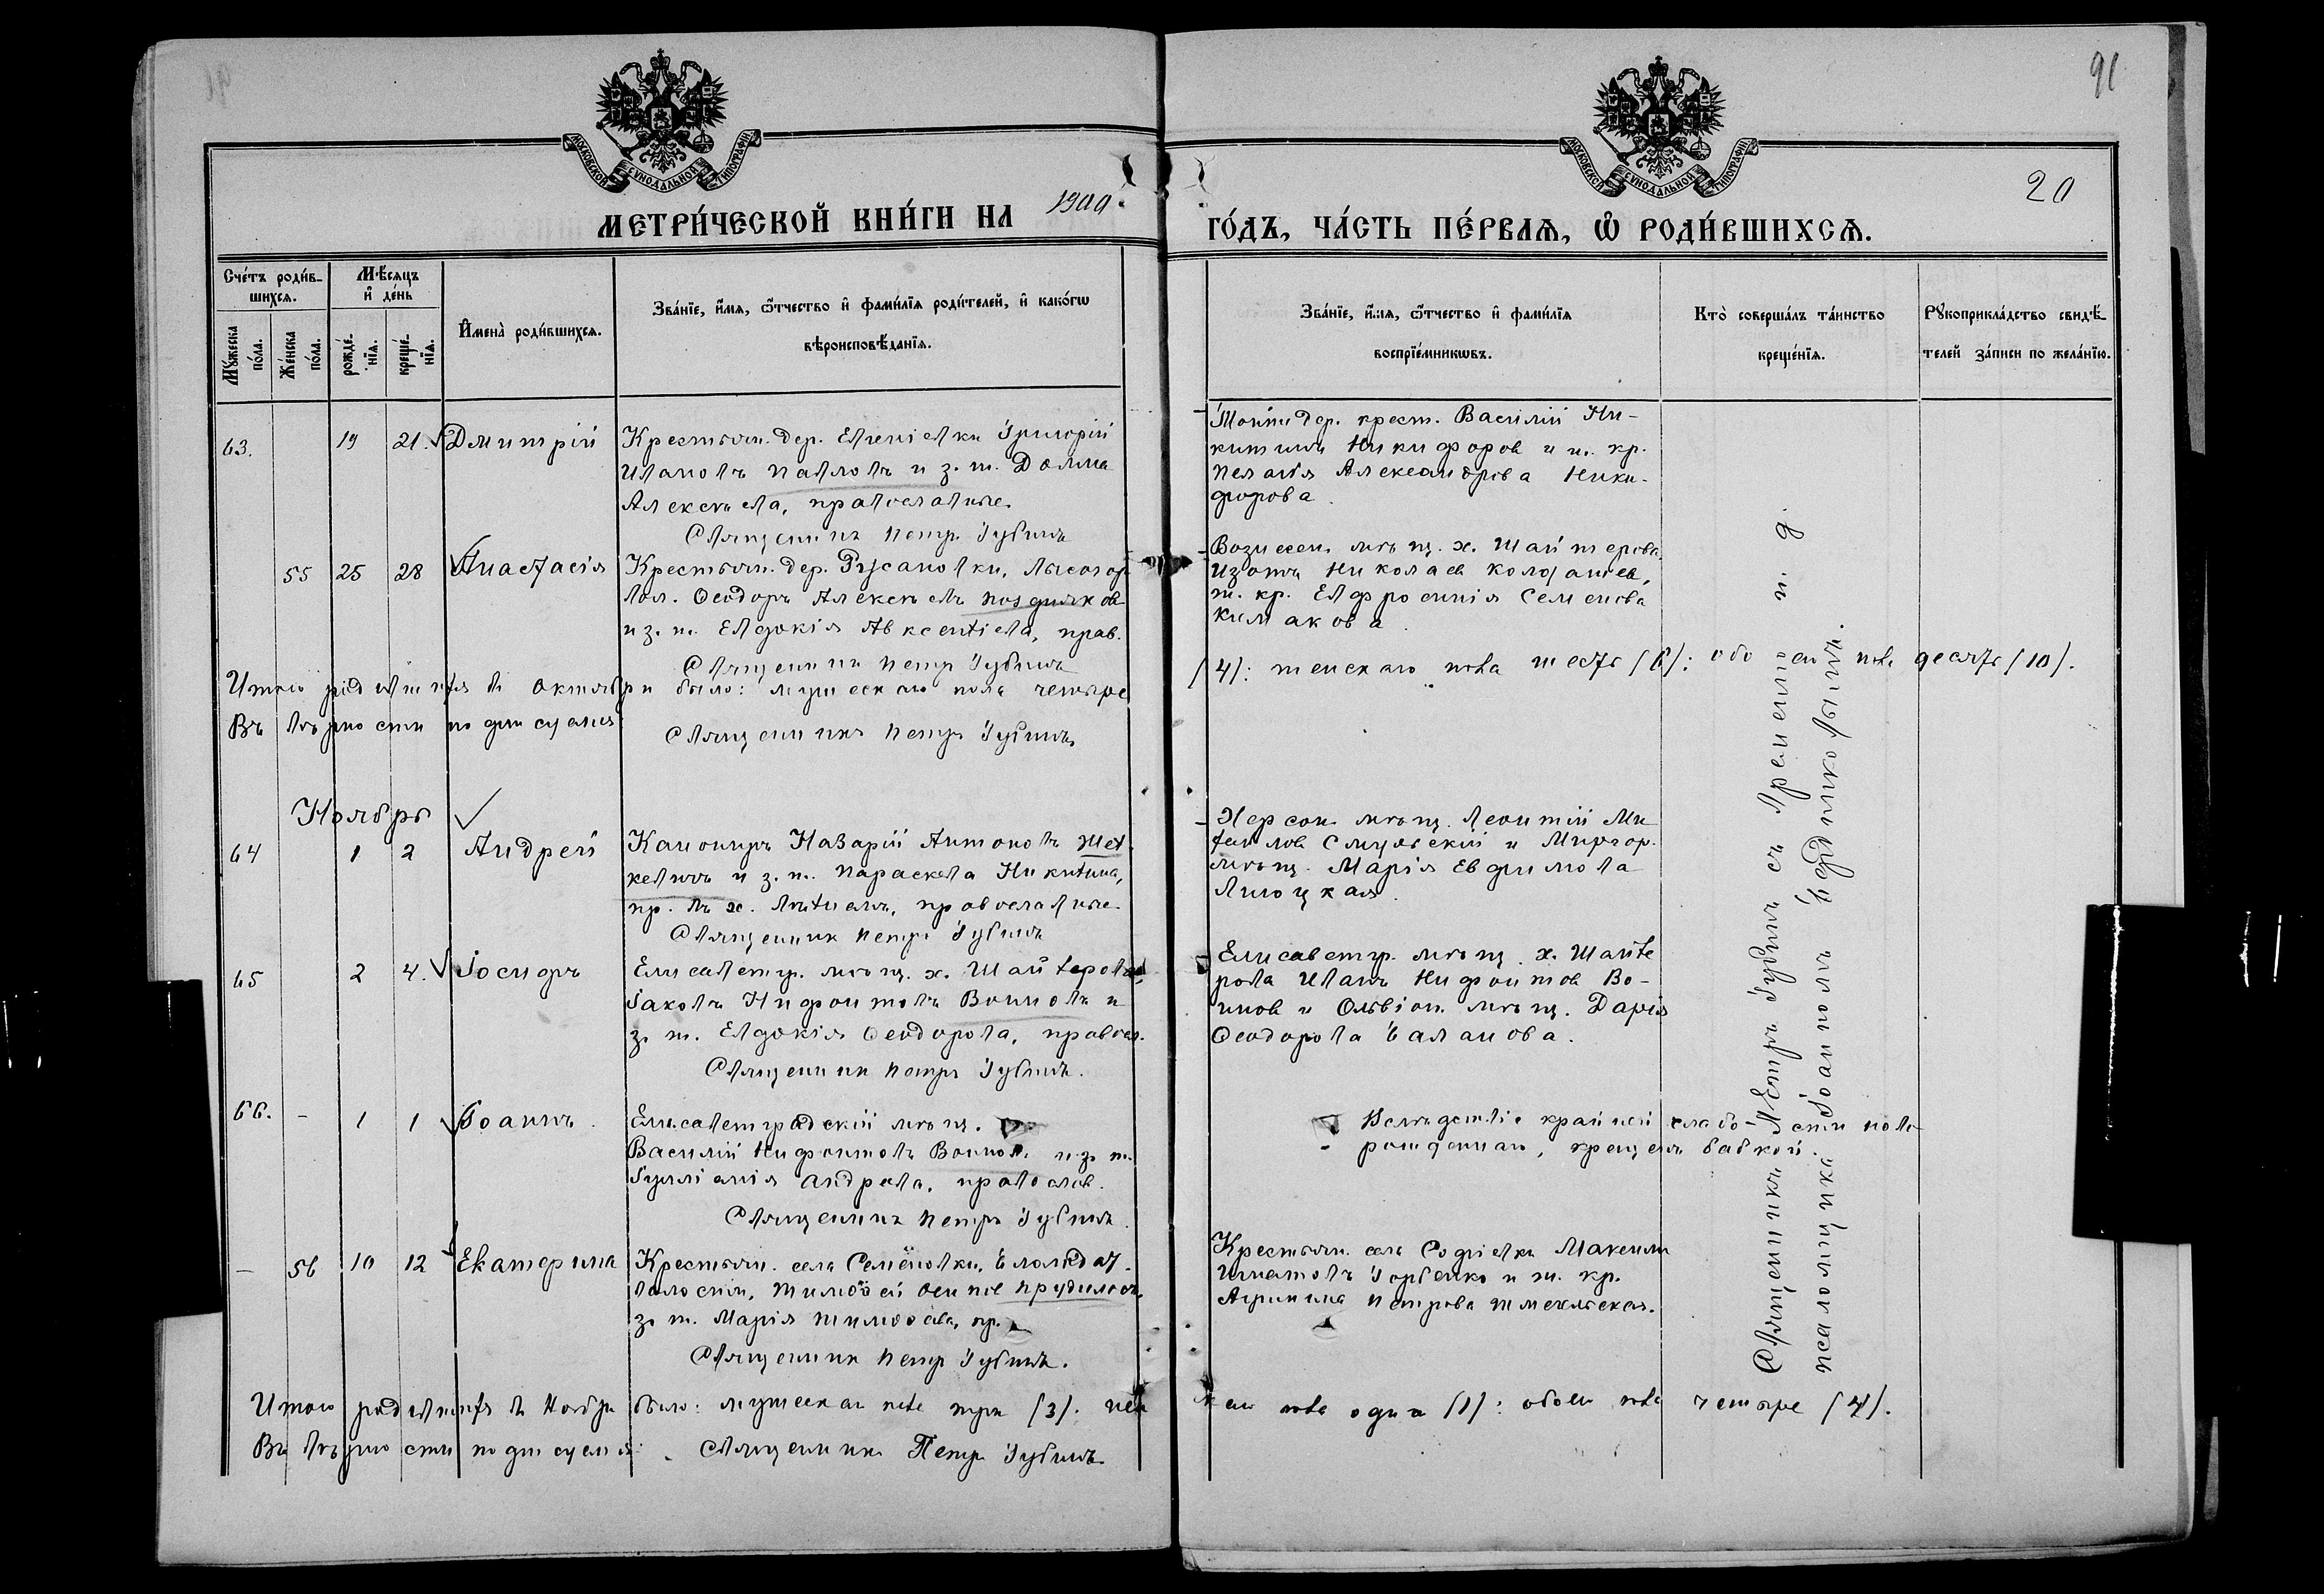 91
МОСКОВСКОЙ СѴНОДАЛЬНОЙ ТИПОГРАФІИ
МОСКОВСКОЙ СѴНОДАЛЬНОЙ ТИПОГРАФІИ
20
МЕТРИ́ЧЕСКОЙ КНИ́ГИ НА 1900.
ГО́ДЪ, ЧА́СТЬ ПЕ́РВАѦ, Ѡ РОДИ́ВШИХСѦ.
Сче́тъ роди́в-
шихсѧ.
Мѣ́сѧцъ
и҆ де́нь
Мꙋ́жеска по́ла.
Же́нска по́ла.
рожде́-
нїѧ.
креще́-
нїѧ.
И҆мена̀ роди́вшихсѧ.
Зва́нїе, и҆́мѧ, ѻ҆́тчество и҆ фами́лїѧ роди́телей, и҆ како́гѡ
вѣроисповѣ́данїѧ.
Зва́нїе, и҆́мѧ, ѻ҆́тчество и҆ фами́лїѧ
воспрїе́мникѡвъ.
Кто̀ соверша́лъ та́инство
креще́нїѧ.
Рꙋкоприкла́дство свидѣ́-
телей за́писи по жела́нїю.
63. 19 21. Дмитрій
Крестьян. дер. Евгеніевки Григорій
Ивановъ Павловъ и з. ж. Домна
Алексѣева, православные.
Священникъ Петръ Губинъ
Тойже дер. крест. Василій Ни-
китинъ Никифоров и ж. кр.
Пелагія Александрова Ники-
форова.
55 25 28 Анастасія
Крестьян. дер. Русановки, Лысогор
вол. Ѳеодоръ Алексѣевъ Поздняков
и з. ж. Евдокія Авксентіева, прав.
Священникъ Петръ Губинъ
Вознесен. мѣщ. х. Шайтерова
Изотъ Николаев
ж. кр. Евфросинія Семенова
Кимакова.
Итого родившихся въ Октябрѣ было: мужескаго пола четыре
(4): женскаго пола шесть (6): обоего пола десять (10).
Въ вѣрности подписуемся:
Священникъ Петръ Губинъ
Ноябрь
64 1 2 Андрей
Канониръ Назарій Антоновъ Шев
келичъ и з. ж. Параскева Никитина,
пр. въ х. православные.
Священникъ Петръ Губинъ
Херсон. мѣщ. Леонтій Ми
хаилов и Миргор.
мѣщ. Марія Евфимова
Лисоцкая.
65 2 4. Іосифъ
Елисаветгр. мѣщ. х. Шайтерова,
Іаковъ Нифонтовъ Воиновъ и
з. ж. Евдокія Ѳеодорова, правосл.
Священникъ Петръ Губинъ.
Елисаветгр. мѣщ. х. Шайте
рова Иванъ Нифонтов Во-
инов и Ольвіоп. мѣщ. Дарія
Ѳеодорова Баланова.
66. - 1 1 Іоаннъ.
Елисаветградскій мѣщ.
Василій Нифонтовъ Воиновъ и з. ж.
Іуліанія Андреева, православ.
Священникъ Петръ Губинъ.
Вслѣдствіе крайней слабости ново-
рожденнаго, крещенъ бабкой.
- 56 10 12 Екатерина
Крестьян. села Семёновки,
волости, Тимоѳей Осипов
з. ж. Марія Тимоѳеева, пр.
Священник Петръ Губинъ.
Крестьян. села Софіевки Максимъ
Игнатовъ Горбенко и ж. кр.
Агрипина Петрова
Священникъ Петръ Губинъ съ временно и. д.
псаломщика Іоанномъ
Итого родившихся въ Ноябрѣ было: мужескаго пола три (3). жен
скаго пола одна (1): обоего пола четыре (4).
Въ вѣрности подписуемся: Священникъ Петръ Губинъ